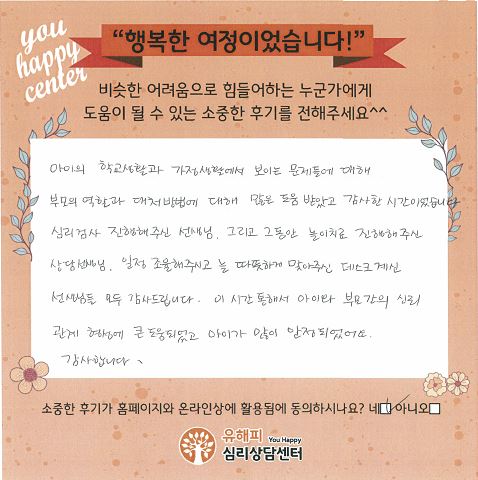 you
happy
center
“행복한 여정이었습니다!”
비슷한 어려움으로 힘들어하는 누군가에게
도움이 될 수 있는 소중한 후기를 전해주세요^^
아이의 학교생활과 가정생활에서 보이는 문제들에 대해
부모의 역할과 대처방법에 대해 많은 도움 받았고 감사한 시간이었습니다
심리검사 진행해주신 선생님, 그리고 그동안 놀이치료 진행해주신
상담선생님, 일정 조율해주시고 늘 따뜻하게 맞아주신 데스크 계신
선생님들 모두 감사드립니다. 이 시간 통해서 아이와 부모간의 신뢰
관계 형성에 큰 도움되었고 아이가 많이 안정되었어요.
감사합니다.
소중한 후기가 홈페이지와 온라인상에 활용됨에 동의하시나요? 네☑ 아니오□
유해피 You Happy
심리상담센터